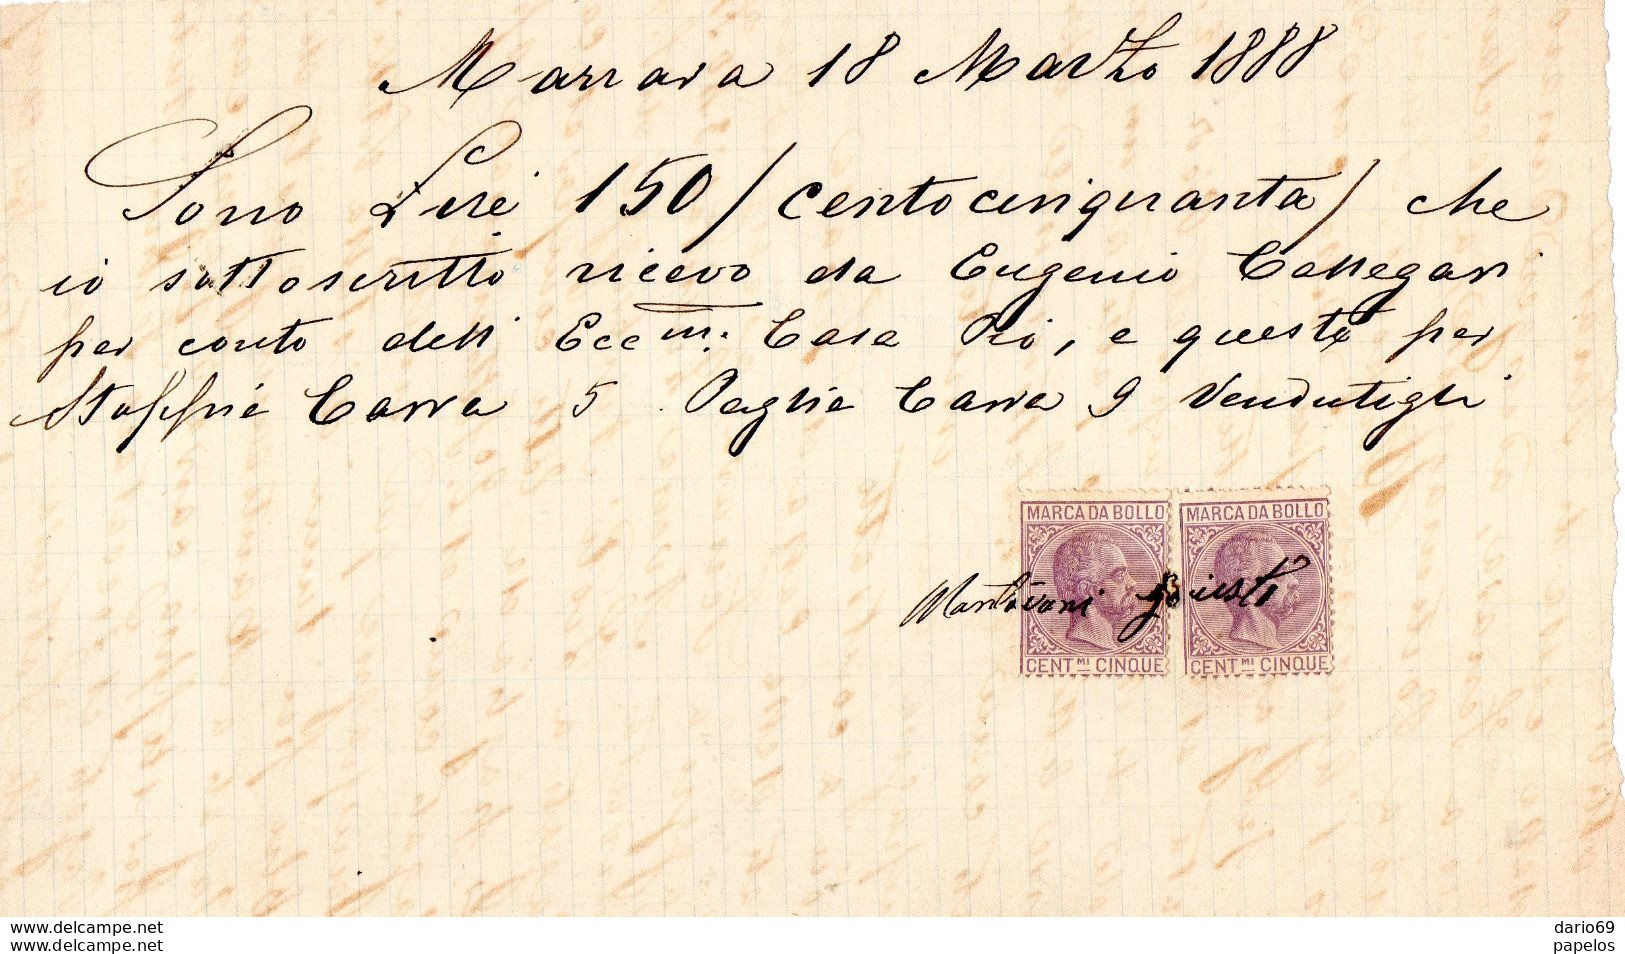 Marrara 18 Marzo 1888
Sono Lire 150 / centocinquanta / che
io sottoscritto ricevo da Eugenio Callegari
per conto dell' Eccm: Casa Pio, e questo per
Stoppie Carra 5 Paglia Carra 9 Vendutigli
MARCA DA BOLLO MARCA DA BOLLO
Mantovani Giusto
CENT.MI CINQUE CENT.MI CINQUE
www.delcampe.net
www.delcampe.net
dario69
papelos